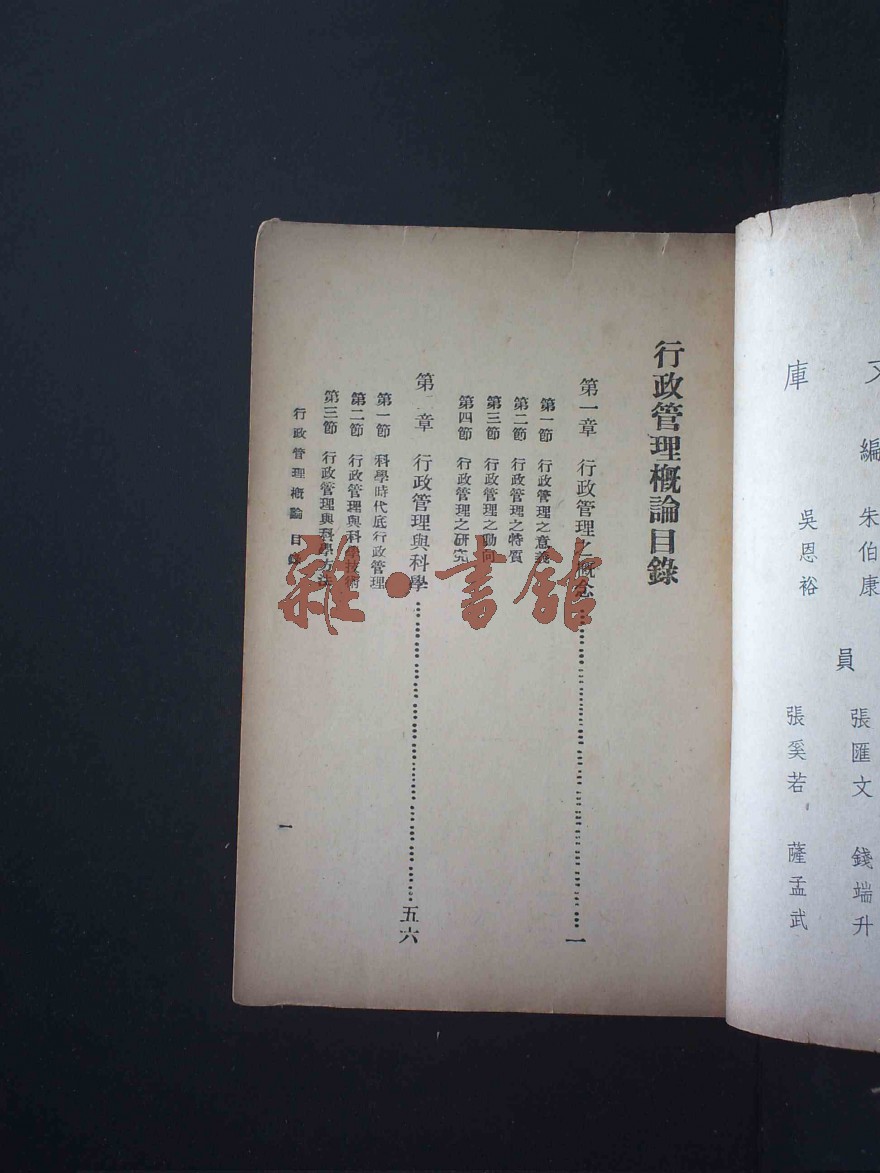 文
庫
編
朱伯康
吳恩裕
員
張匯文 錢端升
張奚若 薩孟武
行政管理概論目錄
第一章 行政管理之概念……一
第一節 行政管理之意義
第二節 行政管理之特質
第三節 行政管理之動向
第四節 行政管理之研究
第二章 行政管理與科學……五六
第一節 科學時代底行政管理
第二節 行政管理與科學技術
第三節 行政管理與科學方法
行政管理概論 目錄
一
雜·書館